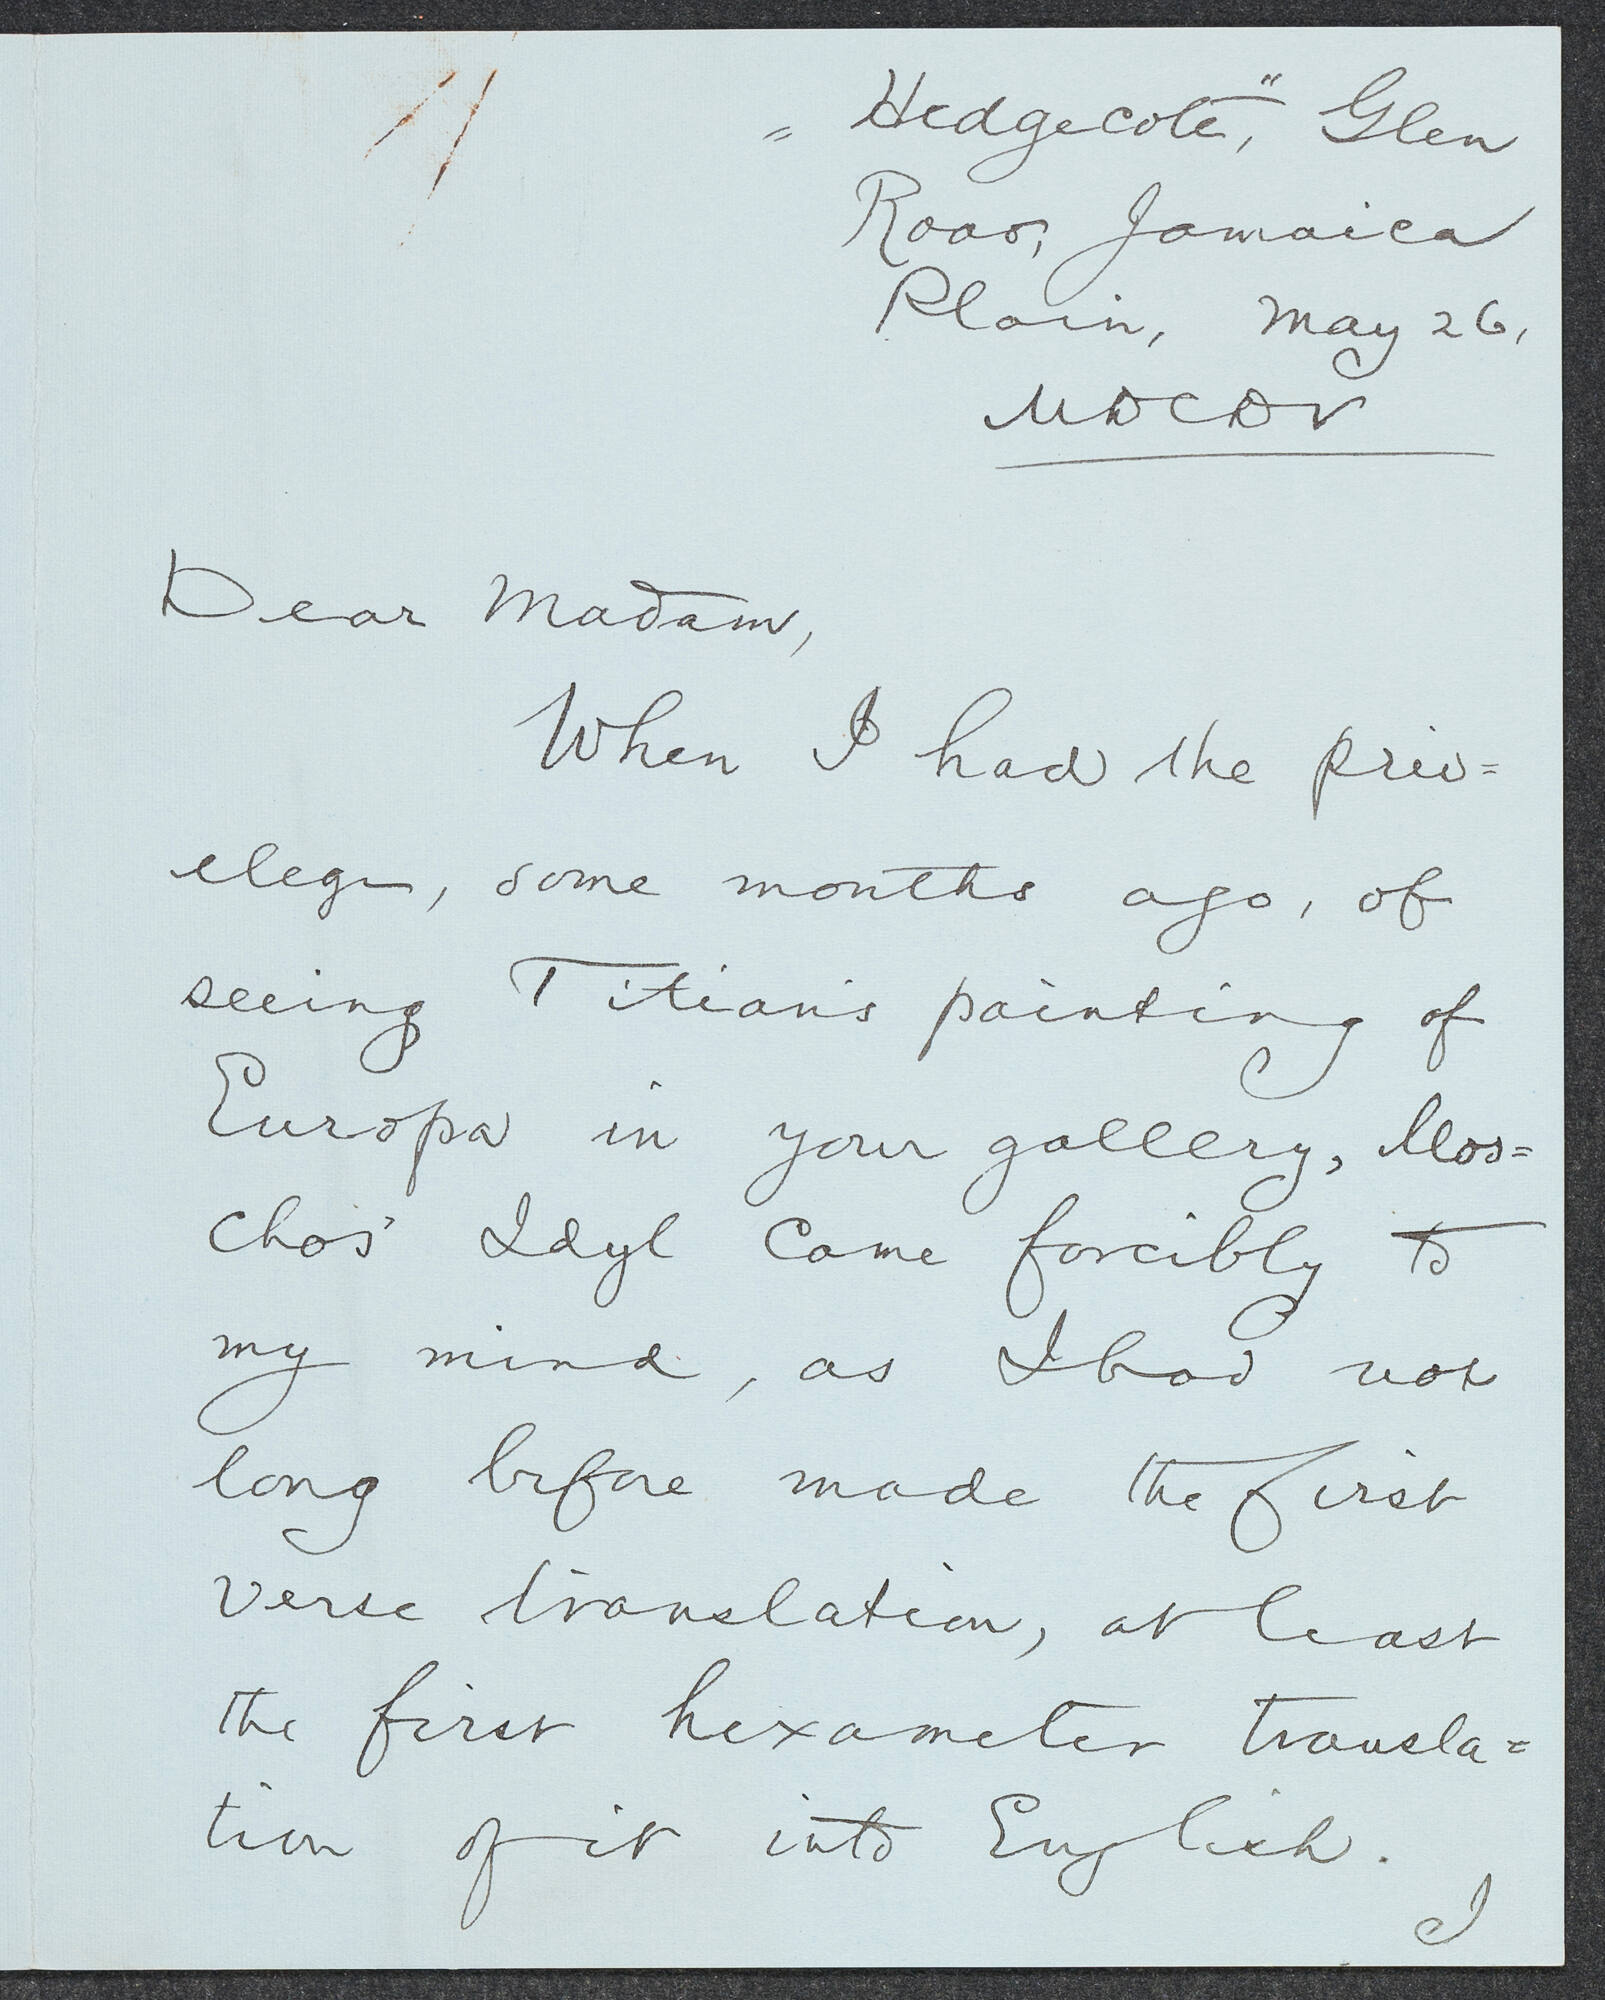 "Hedgecote," Glen
Road, Jamaica
Plain, May 26,
MDCDV
Dear Madam,
When I had the priv=
elege, some months ago, of
seeing Titian's painting of
Europa in your gallery, Mos=
chos' Idyl came forcibly to
my mind, as I had not
long before made the first
verse translation, at least
the first hexameter transla=
tion of it into English.
I